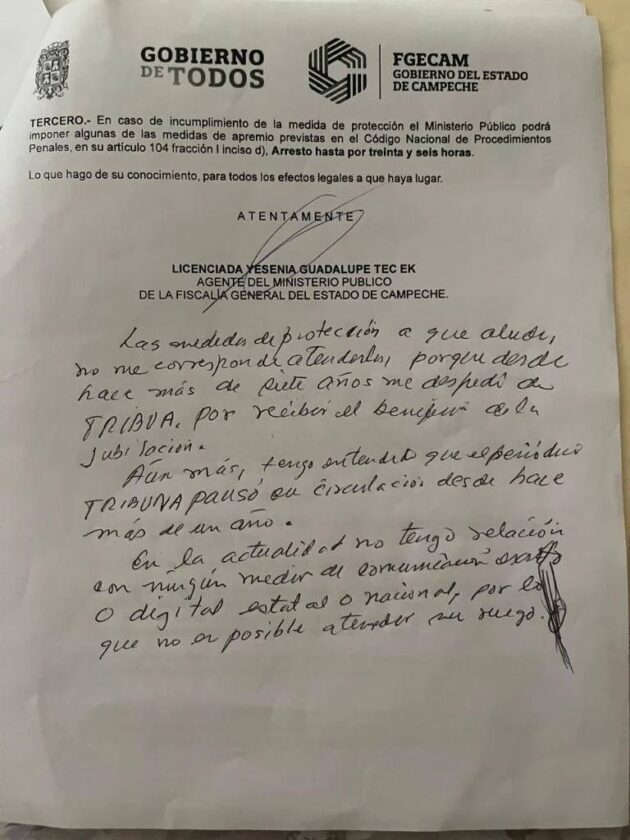 GOBIERNO
DE TODOS
FGECAM
GOBIERNO DEL ESTADO
DE CAMPECHE
TERCERO.- En caso de incumplimiento de la medida de protección el Ministerio Público podrá
imponer algunas de las medidas de apremio previstas en el Código Nacional de Procedimientos
Penales, en su artículo 104 fracción I inciso d), Arresto hasta por treinta y seis horas.
Lo que hago de su conocimiento, para todos los efectos legales a que haya lugar.
ATENTAMENTE
LICENCIADA YESENIA GUADALUPE TEC EK
AGENTE DEL MINISTERIO PUBLICO
DE LA FISCALÍA GENERAL DEL ESTADO DE CAMPECHE.
Las medidas de protección a que alude,
no me corresponde atenderlas, porque desde
hace más de siete años me despedí de
TRIBUA, por recibir el beneficio de la
jubilación.
Aún más, tengo entendido que el periódico
TRIBUNA pausó su circulación desde hace
más de un año.
En la actualidad no tengo relación
con ningún medio de comunicación
O digital estatal o nacional, por lo
que no es posible atender su ruego.